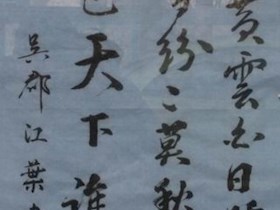 黃雲白日
紛〻莫
天下誰
吳郡江葉